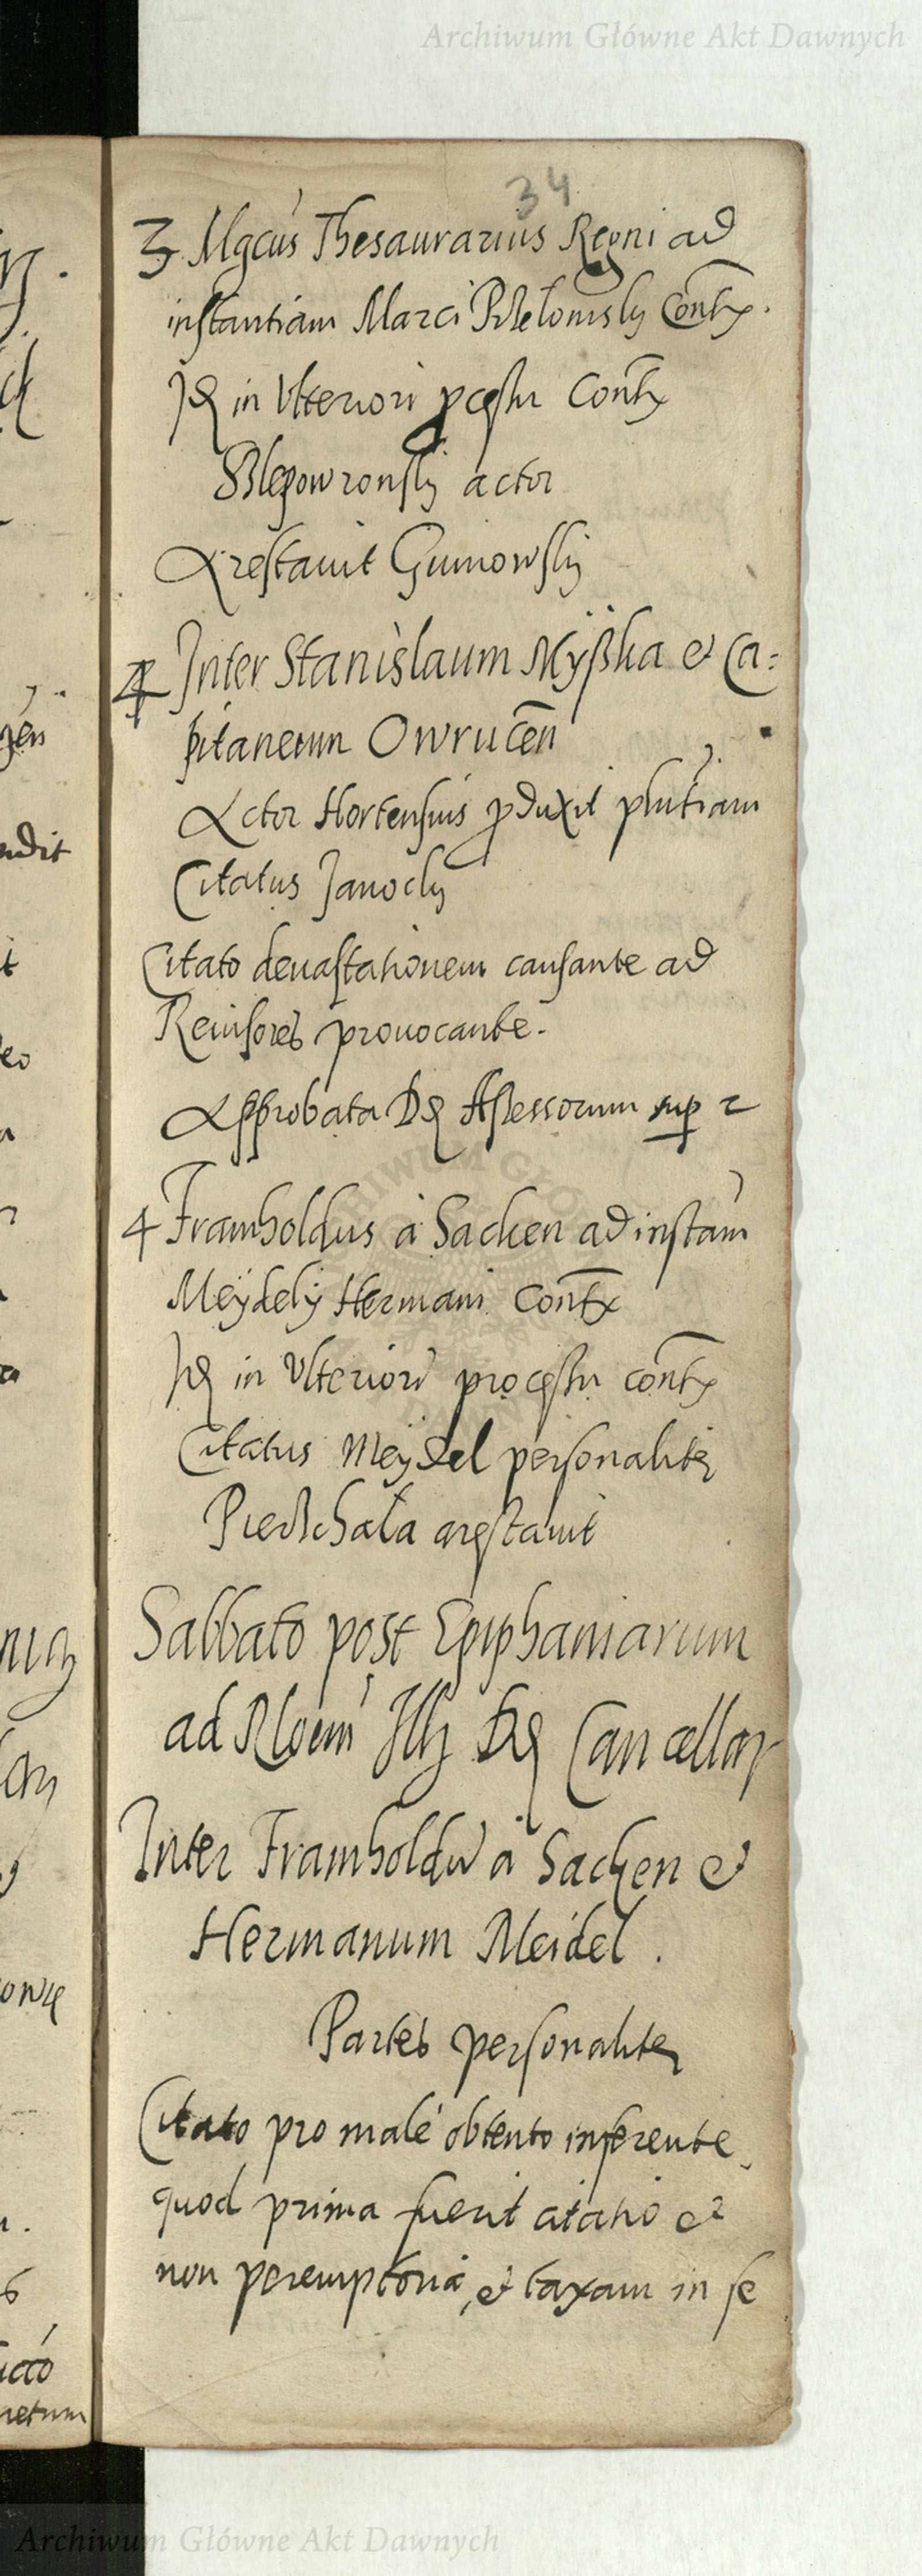 Archiwum Główne Akt Dawnych
34
3 Mgcus Thesaurarius Regni ad
instantiam Marci Contx.
Id in Ulteriori pcessu Contx
Slepowronsky actor
Arestavit Gumowsky
4 Inter Stanislaum Myßka et Ca=
pitaneum Owrucen
Actor Hortensius pduxit
Citatus Janocky
Citato devastationem causante ad
Revisores provocante.
Approbata Assessorum sup 2
4 Framholdus à Sacken ad instam
Meydely Hermani Contx
Id in Ulteriori processu contx
Citatus Meydel personaliter
arestavit
Sabbato post Epiphaniarum
ad Cancellar
Inter Framholdu à Sacken et
Hermanum Meidel.
Partes personaliter
Citato pro male obtento inferente,
quod prima fuerit citatio et
non peremptoria, et taxam in se
Archiwum Główne Akt Dawnych